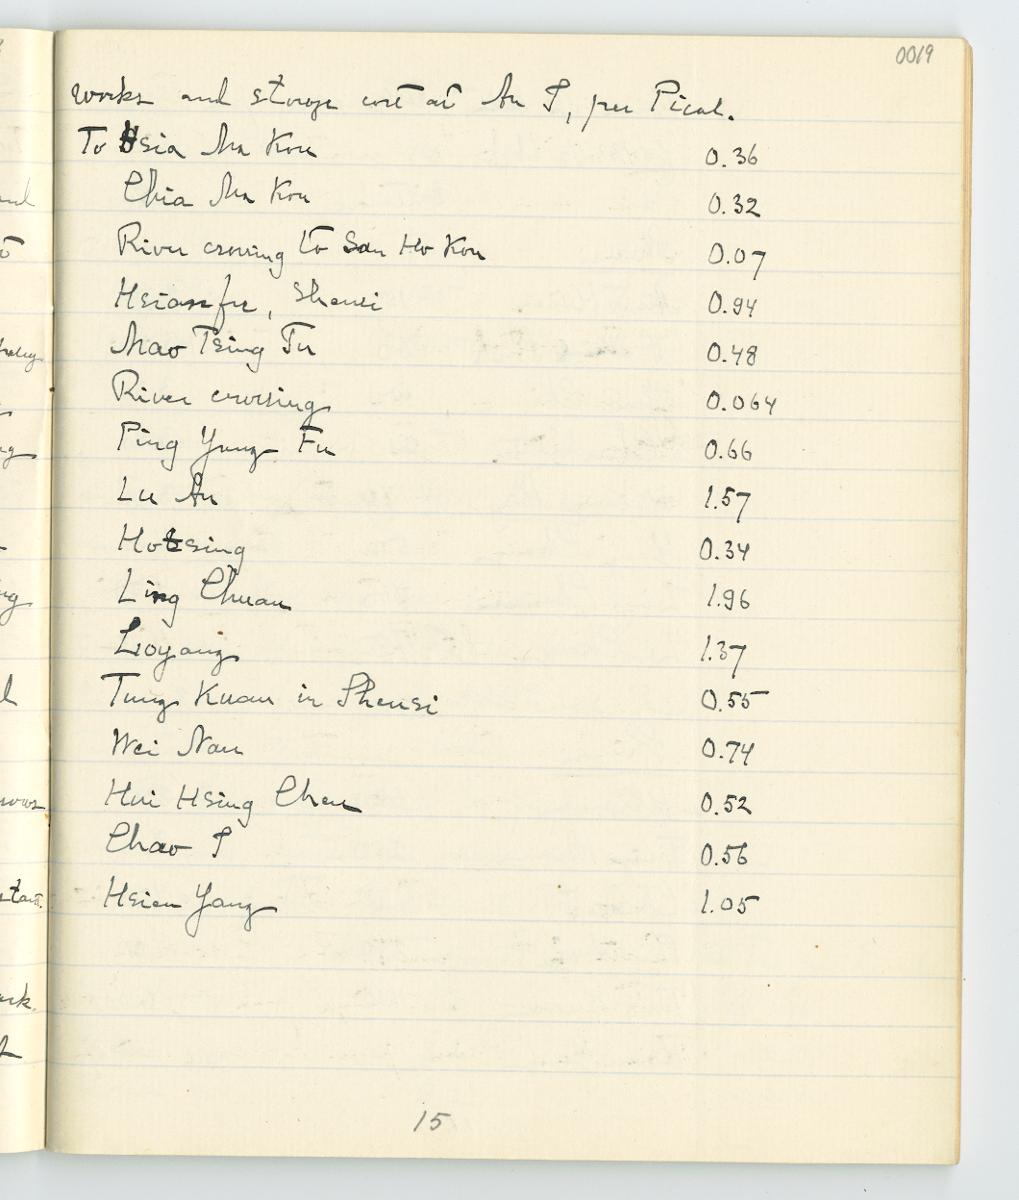 0019
works and storage cost at An I, per Picul.
To Hsia Ma Kou 0.36
Chia Ma Kou 0.32
River crossing to San Ho Kou 0.07
Hsianfu, Shensi 0.94
Mao Tsing Tu 0.48
River crossing 0.064
Ping Yang Fu 0.66
Lu An 1.57
Hotsing 0.34
Ling Chuan 1.96
Loyang 1.37
Tung Kuan in Shensi 0.55
Wei Nan 0.74
Hui Hsing Chen 0.52
Chao I 0.56
Hsien Yang 1.05
15